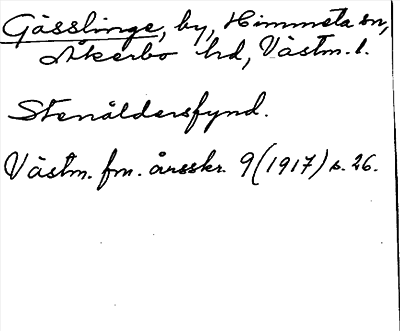 Gässlinge, by, Himmeta sn,
Åkerbo hd, Västm. l.
Stenåldersfynd.
Västm. fm. årsskr. 9 (1917) s. 26.